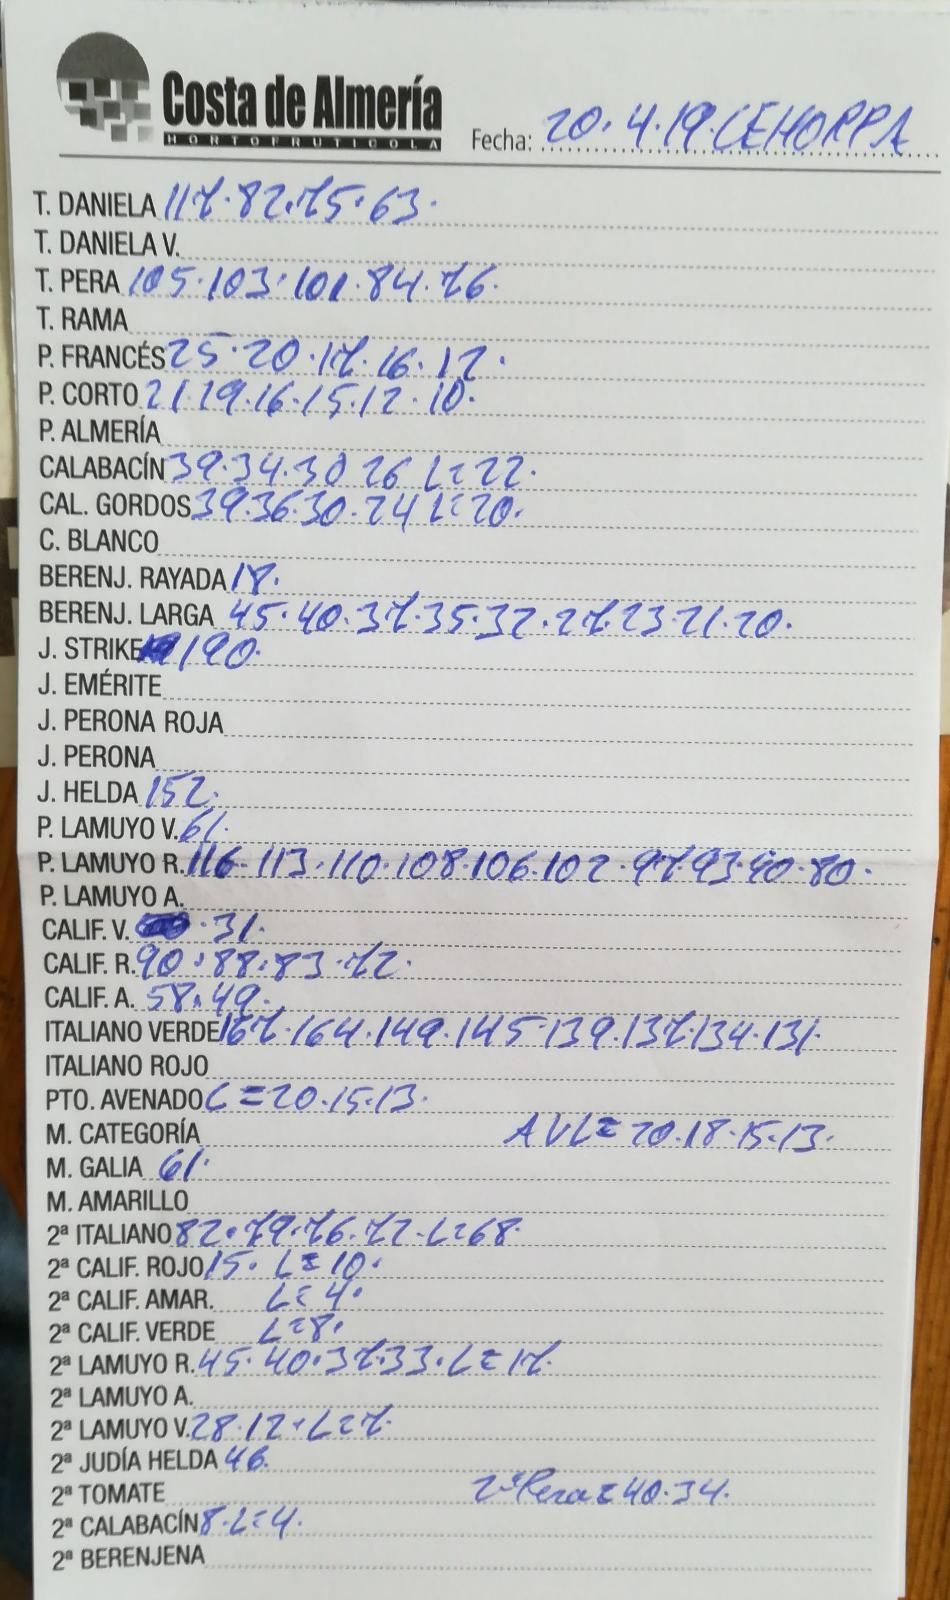 Costa de Almería
HORTOFRUTICOLA
Fecha: 20.4.19.CEHORPA
T. DANIELA 117.82.75.63.
T. DANIELA V.
T. PERA 105.103.101.84.76.
T. RAMA
P. FRANCÉS 25.20.17.16.12.
P. CORTO 21.19.16.15.12.10.
P. ALMERÍA
CALABACÍN 39.34.30 26 L=22.
CAL. GORDOS 39.36.30.24 L=20.
C. BLANCO
BERENJ. RAYADA 18.
BERENJ. LARGA 45.40.37.35.32.27.23.21.20.
J. STRIKE 190.
J. EMÉRITE
J. PERONA ROJA
J. PERONA
J. HELDA 152.
P. LAMUYO V. 61.
P. LAMUYO R. 116.113.110.108.106.102.97.93.90.80.
P. LAMUYO A.
CALIF. V. .31.
CALIF. R. 90.88.83.72.
CALIF. A. 58.49.
ITALIANO VERDE 167.164.149.145.139.137.134.131.
ITALIANO ROJO
PTO. AVENADO C=20.15.13.
M. CATEGORÍA AVL=20.18.15.13.
M. GALIA 61.
M. AMARILLO
2ª ITALIANO 82.79.76.72.L=68.
2ª CALIF. ROJO 15. L=10.
2ª CALIF. AMAR. L=4.
2ª CALIF. VERDE L=8.
2ª LAMUYO R. 45.40.37.33.L=17.
2ª LAMUYO A.
2ª LAMUYO V. 28.12.L=7.
2ª JUDÍA HELDA 46.
2ª TOMATE 2ªPera=40.34.
2ª CALABACÍN 8.L=4.
2ª BERENJENA